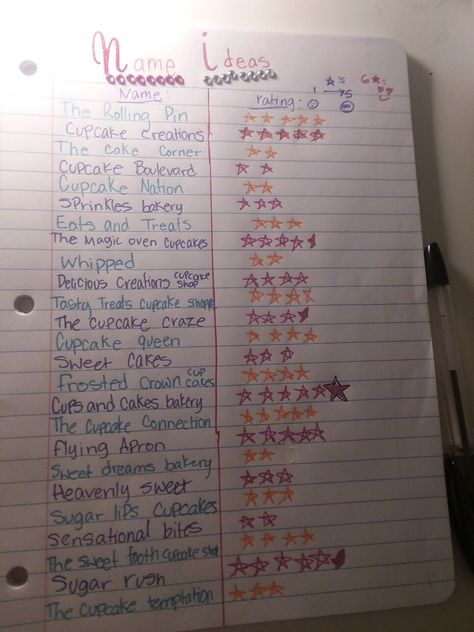 Name Ideas
Name: rating: 1 → 5 6★=
The Rolling Pin
Cupcake Creations
The Cake Corner
Cupcake Boulevard
Cupcake Nation
Sprinkles bakery
Eats and Treats
The Magic oven cupcakes
Whipped
Delicious Creations cupcake shop
Tasty Treats cupcake shoppe
The Cupcake Craze
Cupcake Queen
Sweet Cakes
Frosted Crown cupcakes
Cups and Cakes bakery
The Cupcake Connection
Flying Apron
Sweet dreams bakery
Heavenly Sweet
Sugar lips Cupcakes
Sensational bites
The sweet tooth cupcake shop
Sugar rush
The Cupcake temptation